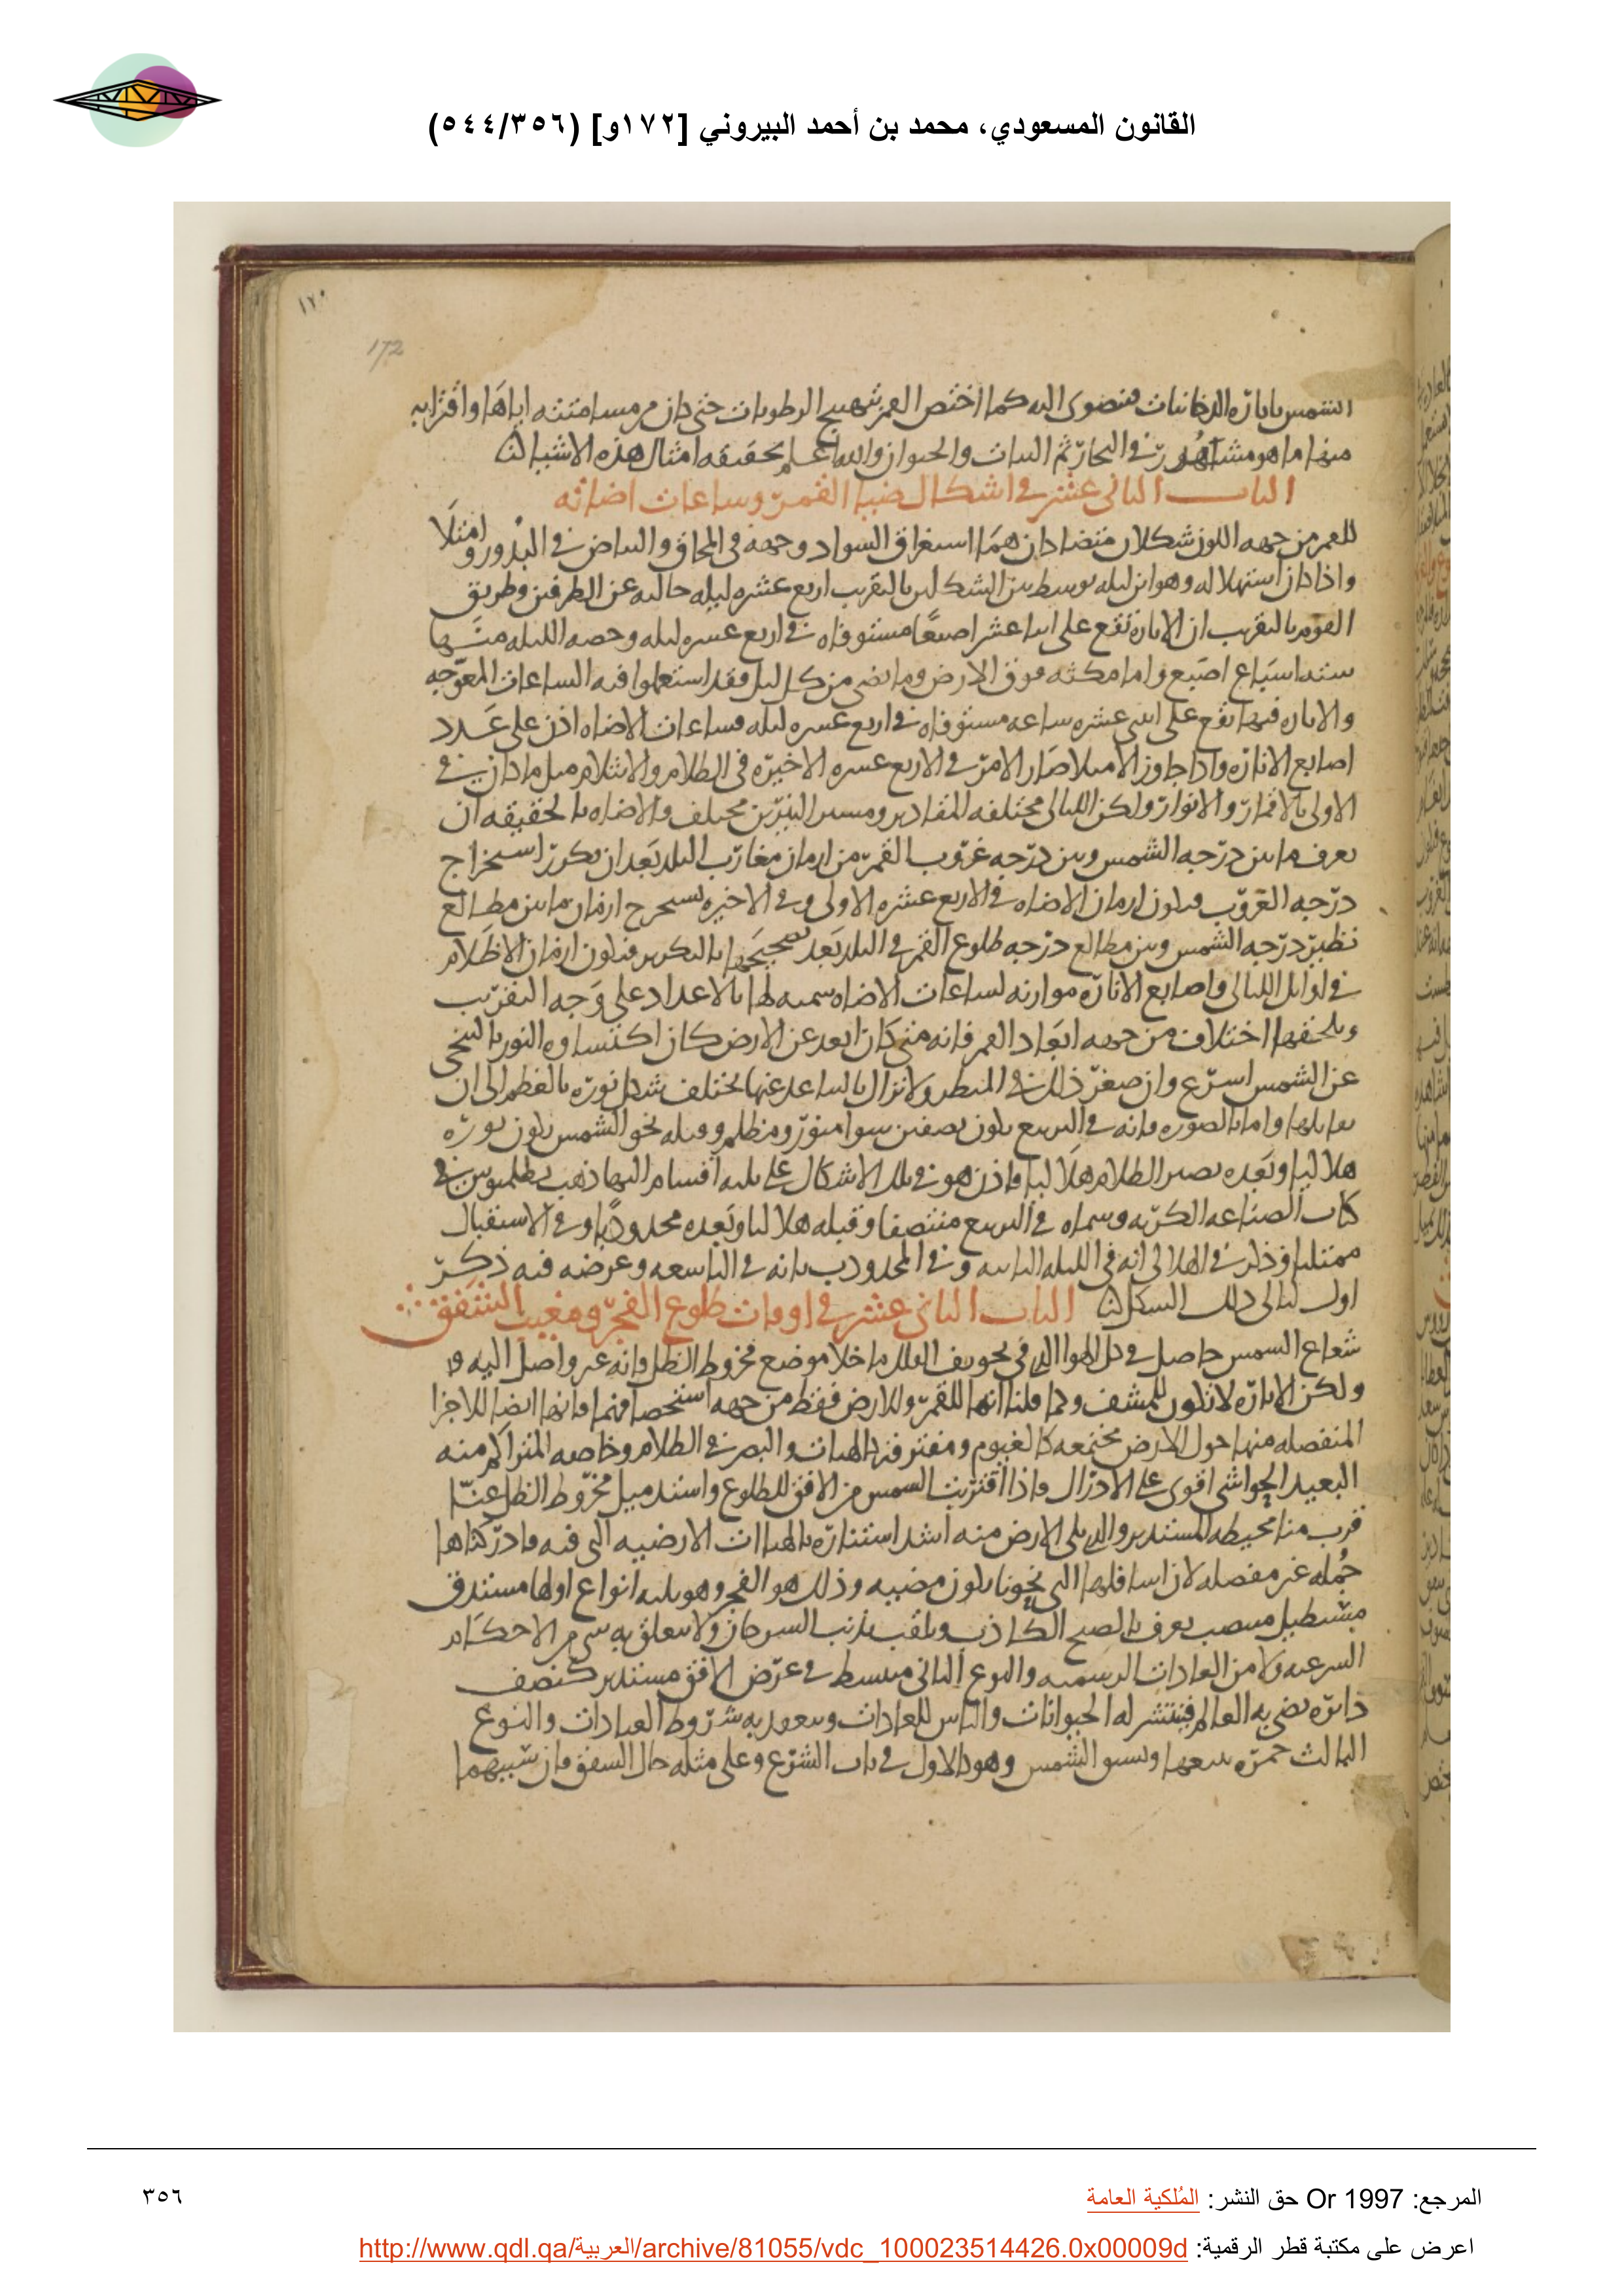 القانون المسعودي، محمد بن أحمد البيروني [١٧٢و] (٥٤٤/٣٥٦)
١٧٠
172
الشمس باثاره الدخانيات فتضوى اليه كما اختص القمر بتهييج الرطوبات حتى كان من مسامتته اياها واقترابه
منها ما هو مشاهد في البحار ثم النبات والحيوان والله اعلم بحقيقه امثال هذه الاشيا
الباب الثاني عشر في اشكال ضيا القمر وساعات اضاته
للقمر من جهه اللون شكلان متضادان هما استغراق السواد وجهه في المحاق والبياض في البدور وامتلا
واذا كان استهلاله وهو ابن ليله توسط بين الشكلين بالتقريب اربع عشره ليله خاليه عن الطرفين وطريق
القوم بالتقريب ان الاناره تقع على اثنا عشر اصبعا مستوفاه في اربع عشره ليله وحصه الليله منها
سته اسباع اصبع واما مكثه فوق الارض وما يضي من كل ليل فقد استعملوا فيه الساعات المعوجه
والاناره فيها تقع على اثنى عشره ساعه مستوفاه في اربع عشره ليله فساعات الاضاه اذن على عدد
اصابع الاناره واذا جاوز الامتلا صار الامر في الاربع عشره الاخيره في الظلام والانثلام مثل ما كان في
الاولى بالاقمار والانوار ولكن الليالى مختلفه المقادير ومسير النيرين مختلف والاضاه بالحقيقه ان
يعرف ما بين درجه الشمس وبين درجه غروب القمر من ازمان مغارب البلد بعد ان يكرر استخراج
درجه الغروب فيكون ازمان الاضاه في الاربع عشره الاولى وفي الاخيره يستخرج ازمان ما بين مطالع
نظير درجه الشمس وبين مطالع درجه طلوع القمر في البلد بعد تصحيحها بالتكرير فيكون ازمان الاظلام
في اوايل الليالى واصابع الاناره موازنه لساعات الاضاه سميه لها بالاعداد على وجه التقريب
ويلحقها اختلاف من جهه ابعاد القمر فانه متى كان ابعد عن الارض كان اكتساوه النور بالتنحى
عن الشمس اسرع وان صغر ذلك في المنظر ولا يزال بالتباعد عنها يختلف شكل نوره بالعظم الى ان
يقابلها واما بالصوره فانه في التربيع يكون بصفين سوا منور ومظلم وقبله نحو الشمس يكون نوره
هلاليا وبعده يصير الظلام هلاليا فاذن هو في تلك الاشكال على ثلثه اقسام اليها ذهب بطلميوس في
كتاب الصناعه الكريه وسماه في التربيع منتصفا وقبله هلاليا وبعده محدودبا وفي الاستقبال
ممتليا وذكر في الهلالى انه في الليله الثانيه وفي المحدودب بانه في التاسعه وغرضه فيه ذكر
اول ليالى ذلك الشكل
الباب الثاني عشر في اوقات طلوع الفجر ومغيب الشفق
شعاع الشمس حاصل في كل الهوا الذي في تجويف الفلك ما خلا موضع مخروط الظل فانه غير واصل اليه
ولكن الاناره لا تكون للمشف وكما قلنا انها للقمر وللارض فقط من جهه استحصافهما فانها ايضا للاجزا
المنفصله منها حول الارض مجتمعه كالغيوم ومفترقه كالهبات والبصر في الظلام وخاصه المتراكم منه
البعيد الحواشى اقوى على الادراك فاذا اقتربت الشمس من الافق للطلوع واستدميل مخروط الظل عنا
قرب منا محيطه المستدير والذي يلى الارض منه اشد استناره بالهباات الارضيه التى فيه فادركناها
جمله غير مفصله لان اسافلها التى نحونا يكون مضيه وذلك هو الفجر وهو ثلثه انواع اولها مستدق
مستطيل منتصب يعرف بالصبح الكاذب ويلقب بذنب السرحان ولا يتعلق به شى من الاحكام
الشرعيه ولا من العادات الرسميه والنوع الثانى منبسط في عرض الافق مستدير كنصف
دائره يضى به العالم فينتشر له الحيوانات والناس للعادات وينعقد به شروط العبادات والنوع
الثالث حمره يتبعها ويسبق الشمس وهو كالاول في باب الشرع وعلى مثله حال الشفق فان سببهما
المرجع: Or 1997 حق النشر: المُلكية العامة
٣٥٦
اعرض على مكتبة قطر الرقمية: http://www.qdl.qa/العربية/archive/81055/vdc_100023514426.0x00009d